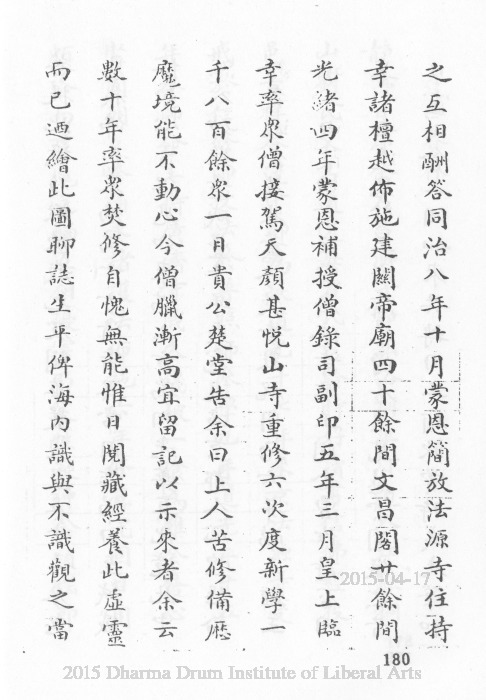 之互相酬答同治八年十月蒙恩簡放法源寺住持
幸諸檀越佈施建關帝廟四十餘間文昌閣廿餘間
光緒四年蒙恩補授僧錄司副印五年三月皇上臨
幸率眾僧接駕天顏甚悅山寺重修六次度新學一
千八百餘眾一日貴公楚堂告余曰上人苦修備歷
魔境能不動心今僧臘漸高宜留記以示來者余云
數十年率眾焚修自愧無能惟日閱藏經養此虛靈
而已迺繪此圖聊誌生平俾海內識與不識觀之當
2015-04-17
180
2015 Dharma Drum Institute of Liberal Arts